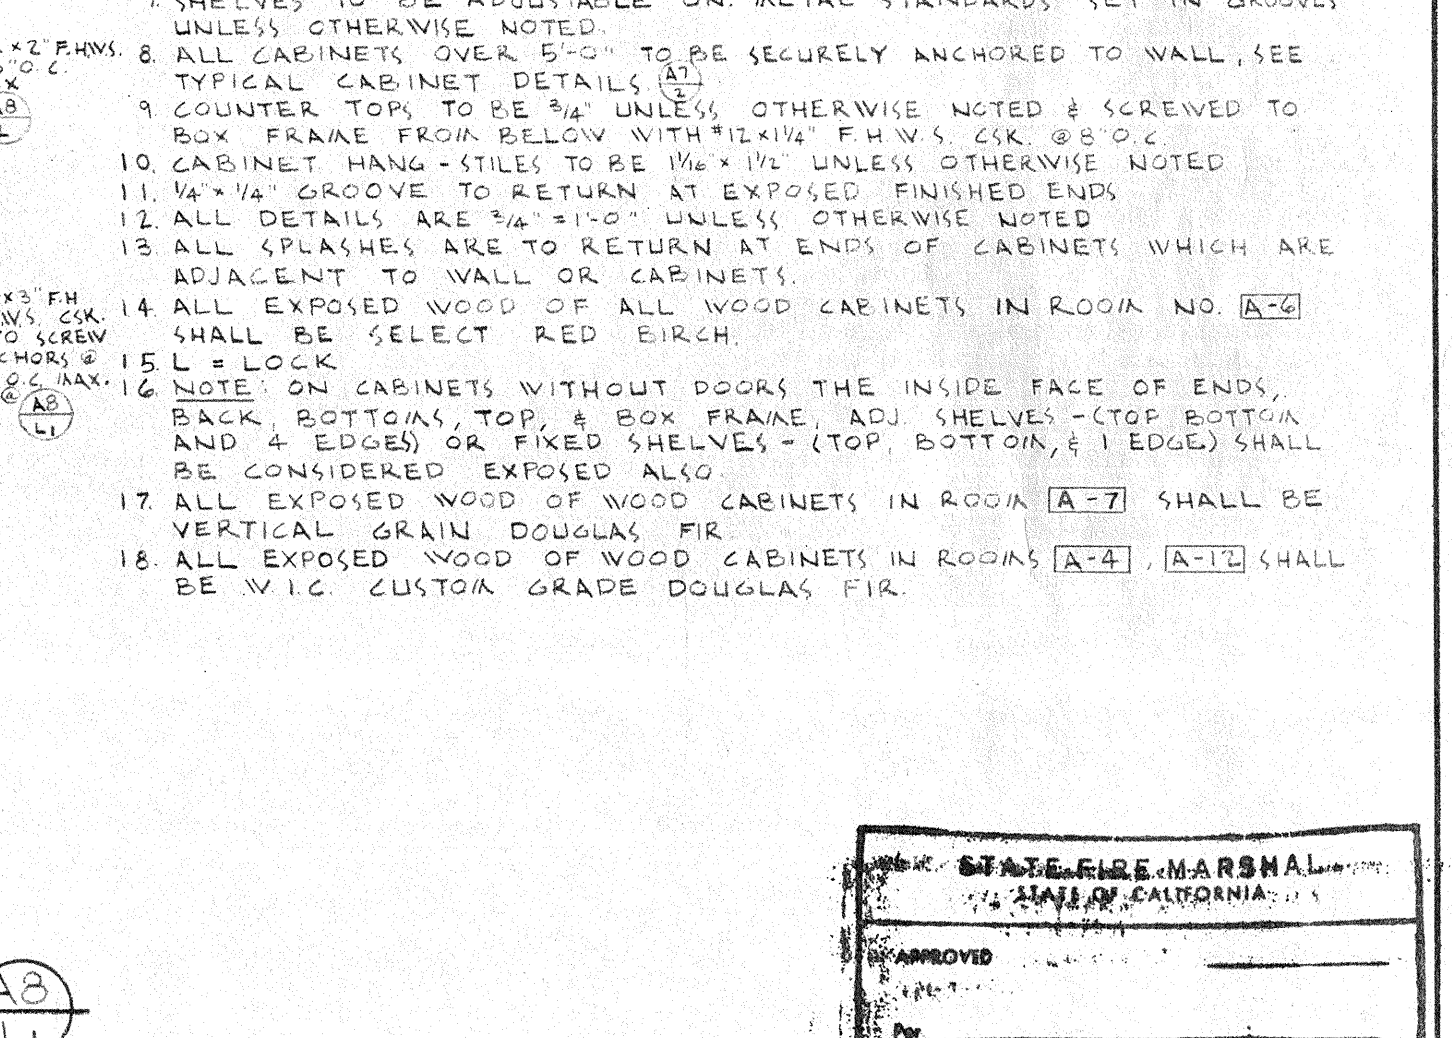 7. SHELVES TO BE ADJUSTABLE ON METAL STANDARDS SET IN GROOVES
UNLESS OTHERWISE NOTED.
8. ALL CABINETS OVER 5'-0" TO BE SECURELY ANCHORED TO WALL, SEE
TYPICAL CABINET DETAILS A7
2
9. COUNTER TOPS TO BE 3/4" UNLESS OTHERWISE NOTED & SCREWED TO
BOX FRAME FROM BELOW WITH #12 x 1 1/4" F.H.W.S. CSK. @ 8" O.C.
10. CABINET HANG-STILES TO BE 1 1/16" x 1 1/2" UNLESS OTHERWISE NOTED
11. 1/4" x 1/4" GROOVE TO RETURN AT EXPOSED FINISHED ENDS
12. ALL DETAILS ARE 3/4" = 1'-0" UNLESS OTHERWISE NOTED
13. ALL SPLASHES ARE TO RETURN AT ENDS OF CABINETS WHICH ARE
ADJACENT TO WALL OR CABINETS.
14. ALL EXPOSED WOOD OF ALL WOOD CABINETS IN ROOM NO. A-6
SHALL BE SELECT RED BIRCH.
15. L = LOCK
16. NOTE: ON CABINETS WITHOUT DOORS THE INSIDE FACE OF ENDS,
BACK, BOTTOMS, TOP, & BOX FRAME, ADJ. SHELVES - (TOP BOTTOM
AND 4 EDGES) OR FIXED SHELVES - (TOP, BOTTOM, & 1 EDGE) SHALL
BE CONSIDERED EXPOSED ALSO.
17. ALL EXPOSED WOOD OF WOOD CABINETS IN ROOM A-7 SHALL BE
VERTICAL GRAIN DOUGLAS FIR
18. ALL EXPOSED WOOD OF WOOD CABINETS IN ROOMS A-4, A-12 SHALL
BE W.I.C. CUSTOM GRADE DOUGLAS FIR.
x 2" F.H.W.S.
O.C.
A8
x 3" F.H.
W.S. CSK.
TO SCREW
CHORS @
O.C. MAX.
@
A8
L1
A8
STATE FIRE MARSHAL
STATE OF CALIFORNIA
APPROVED
Per